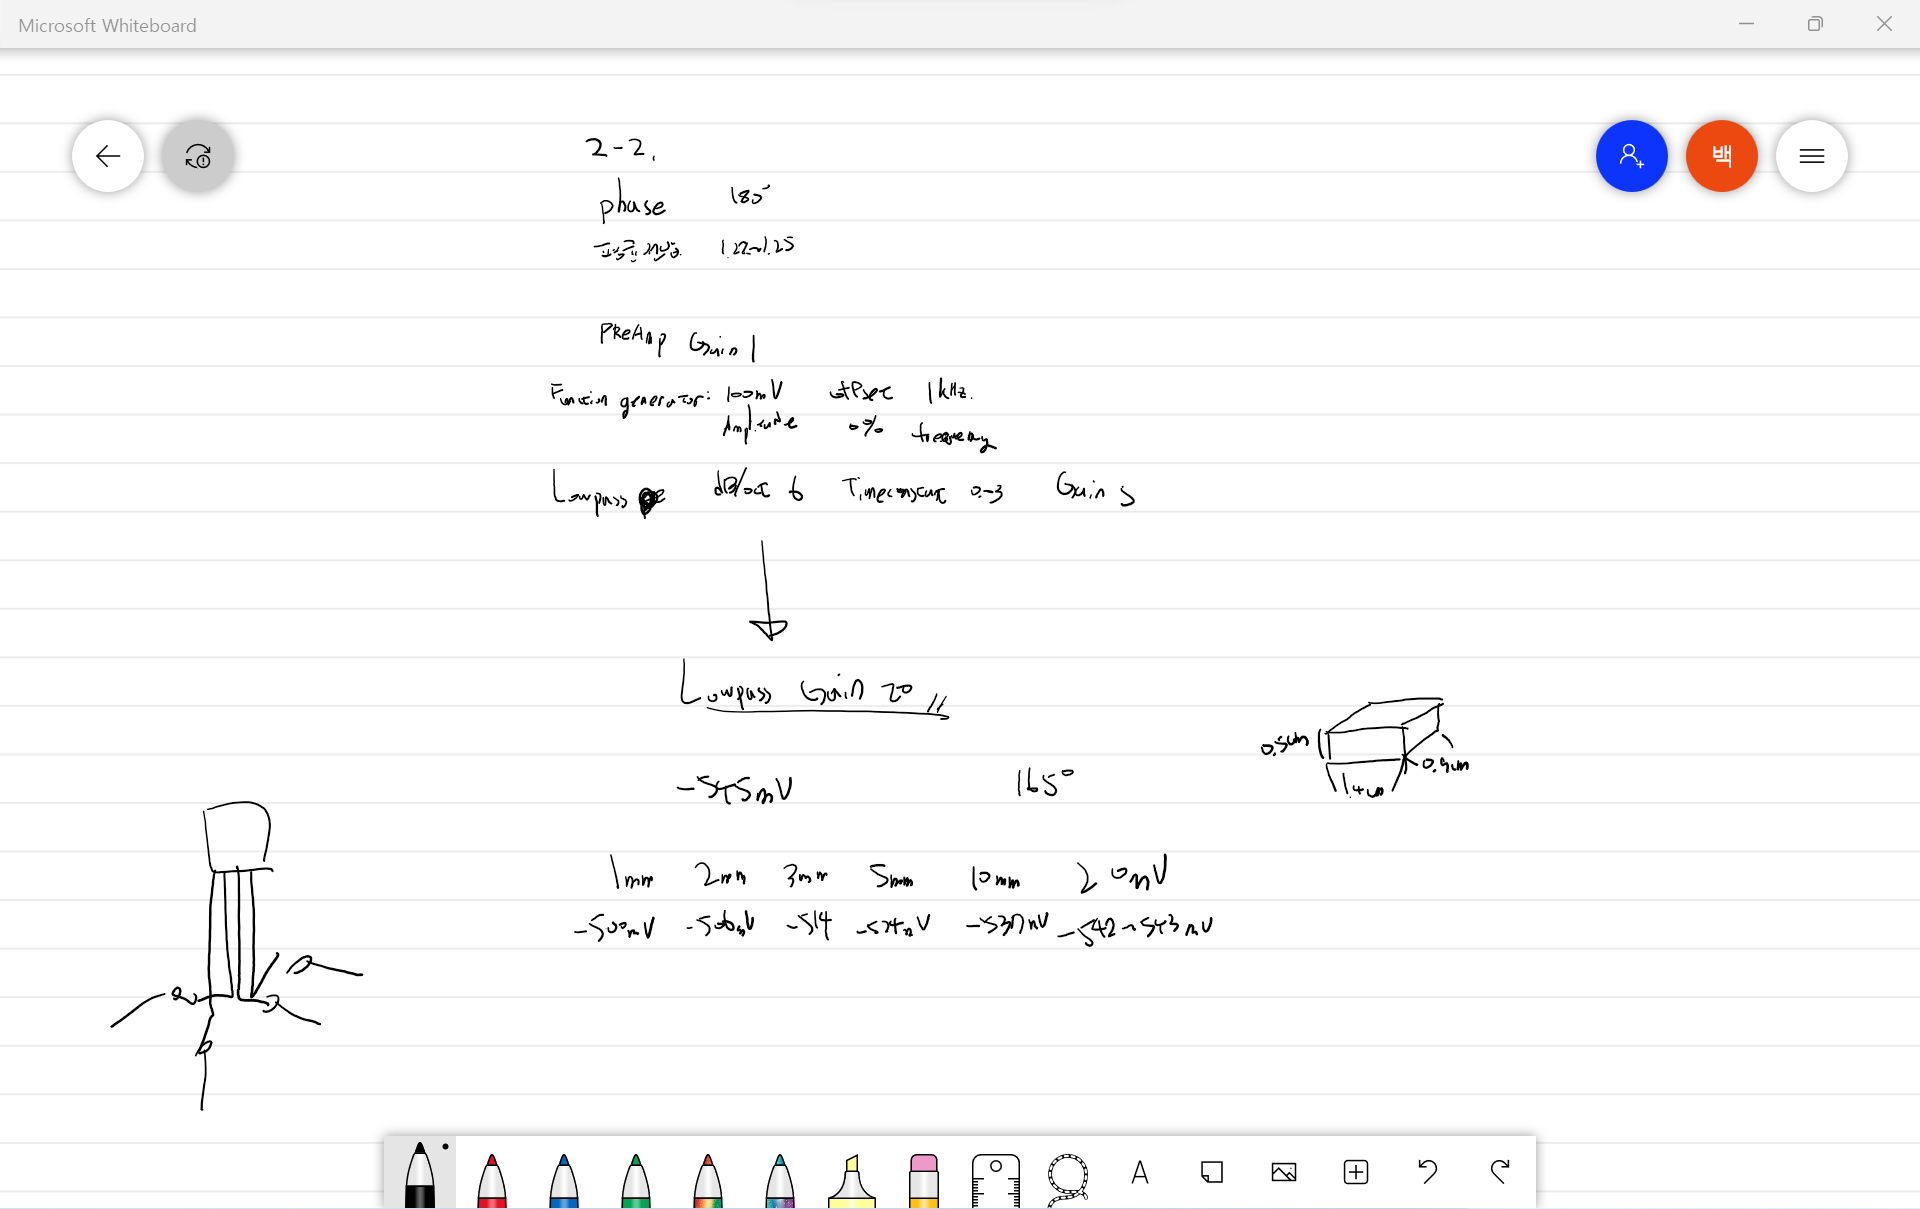 Microsoft Whiteboard
백
2-2.
phase 180°
1.22~1.25
PReAmp Gain 1
Function generator: 100mV offset 1kHz.
Amplitude 0% frequency
Lowpass dB/oct 6 Timeconstant 0.3 Gain 5
Lowpass Gain 20
0.5cm
0.9cm
1.4cm
-545mV 165°
1mm 2mm 3mm 5mm 10mm 20mV
-500mV -506mV -514 -524mV -537mV -542~543mV
A